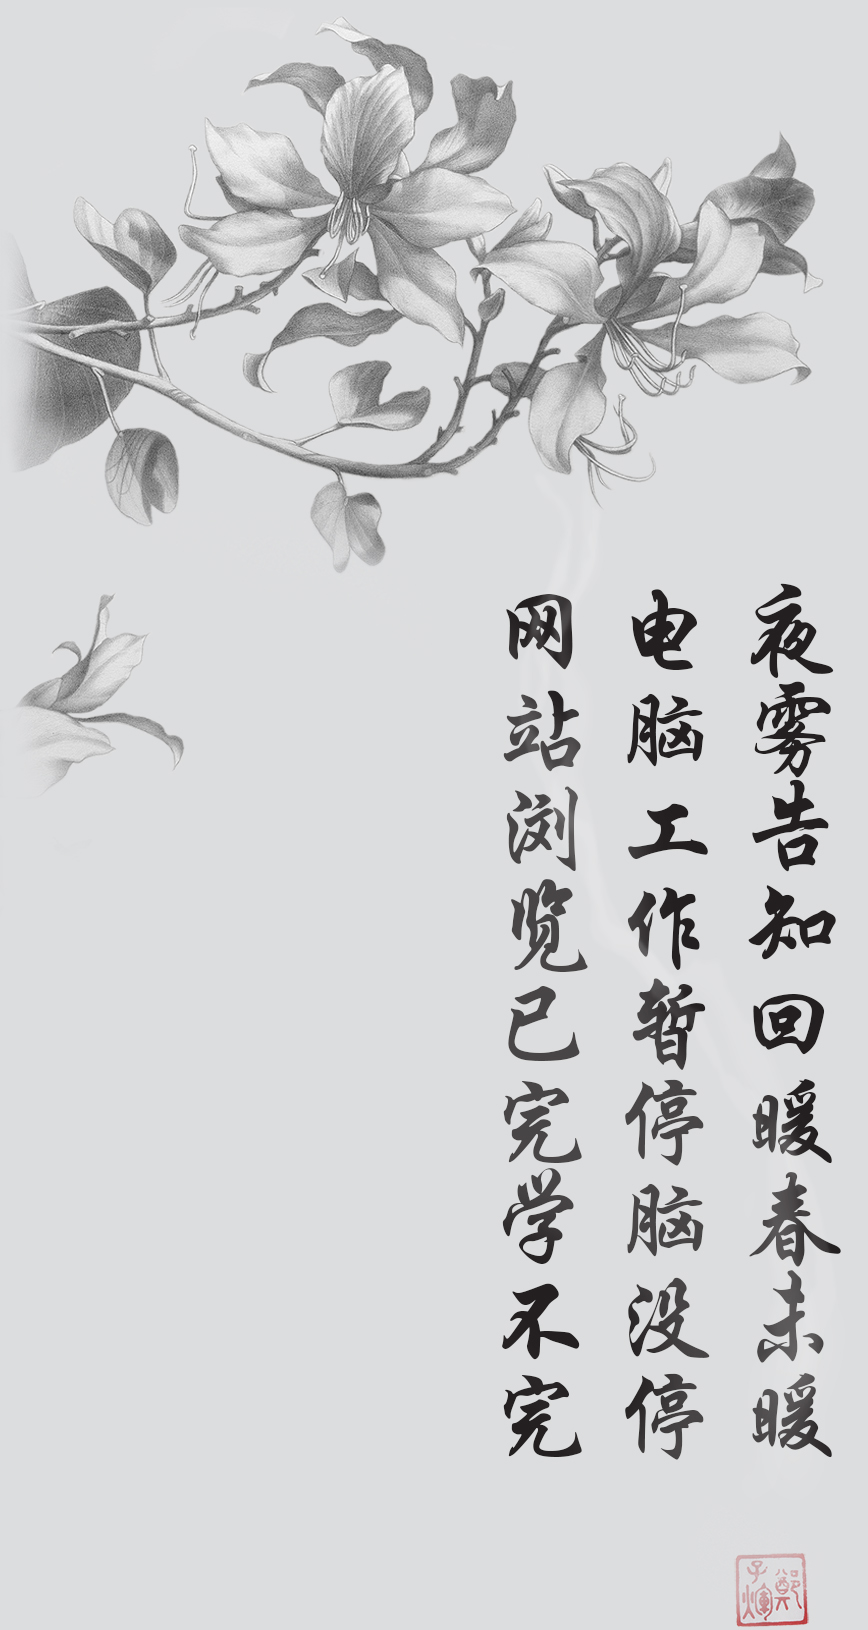 夜雾告知回暖春未暖
电脑工作暂停脑没停
网站浏览已完学不完
鄭子輝